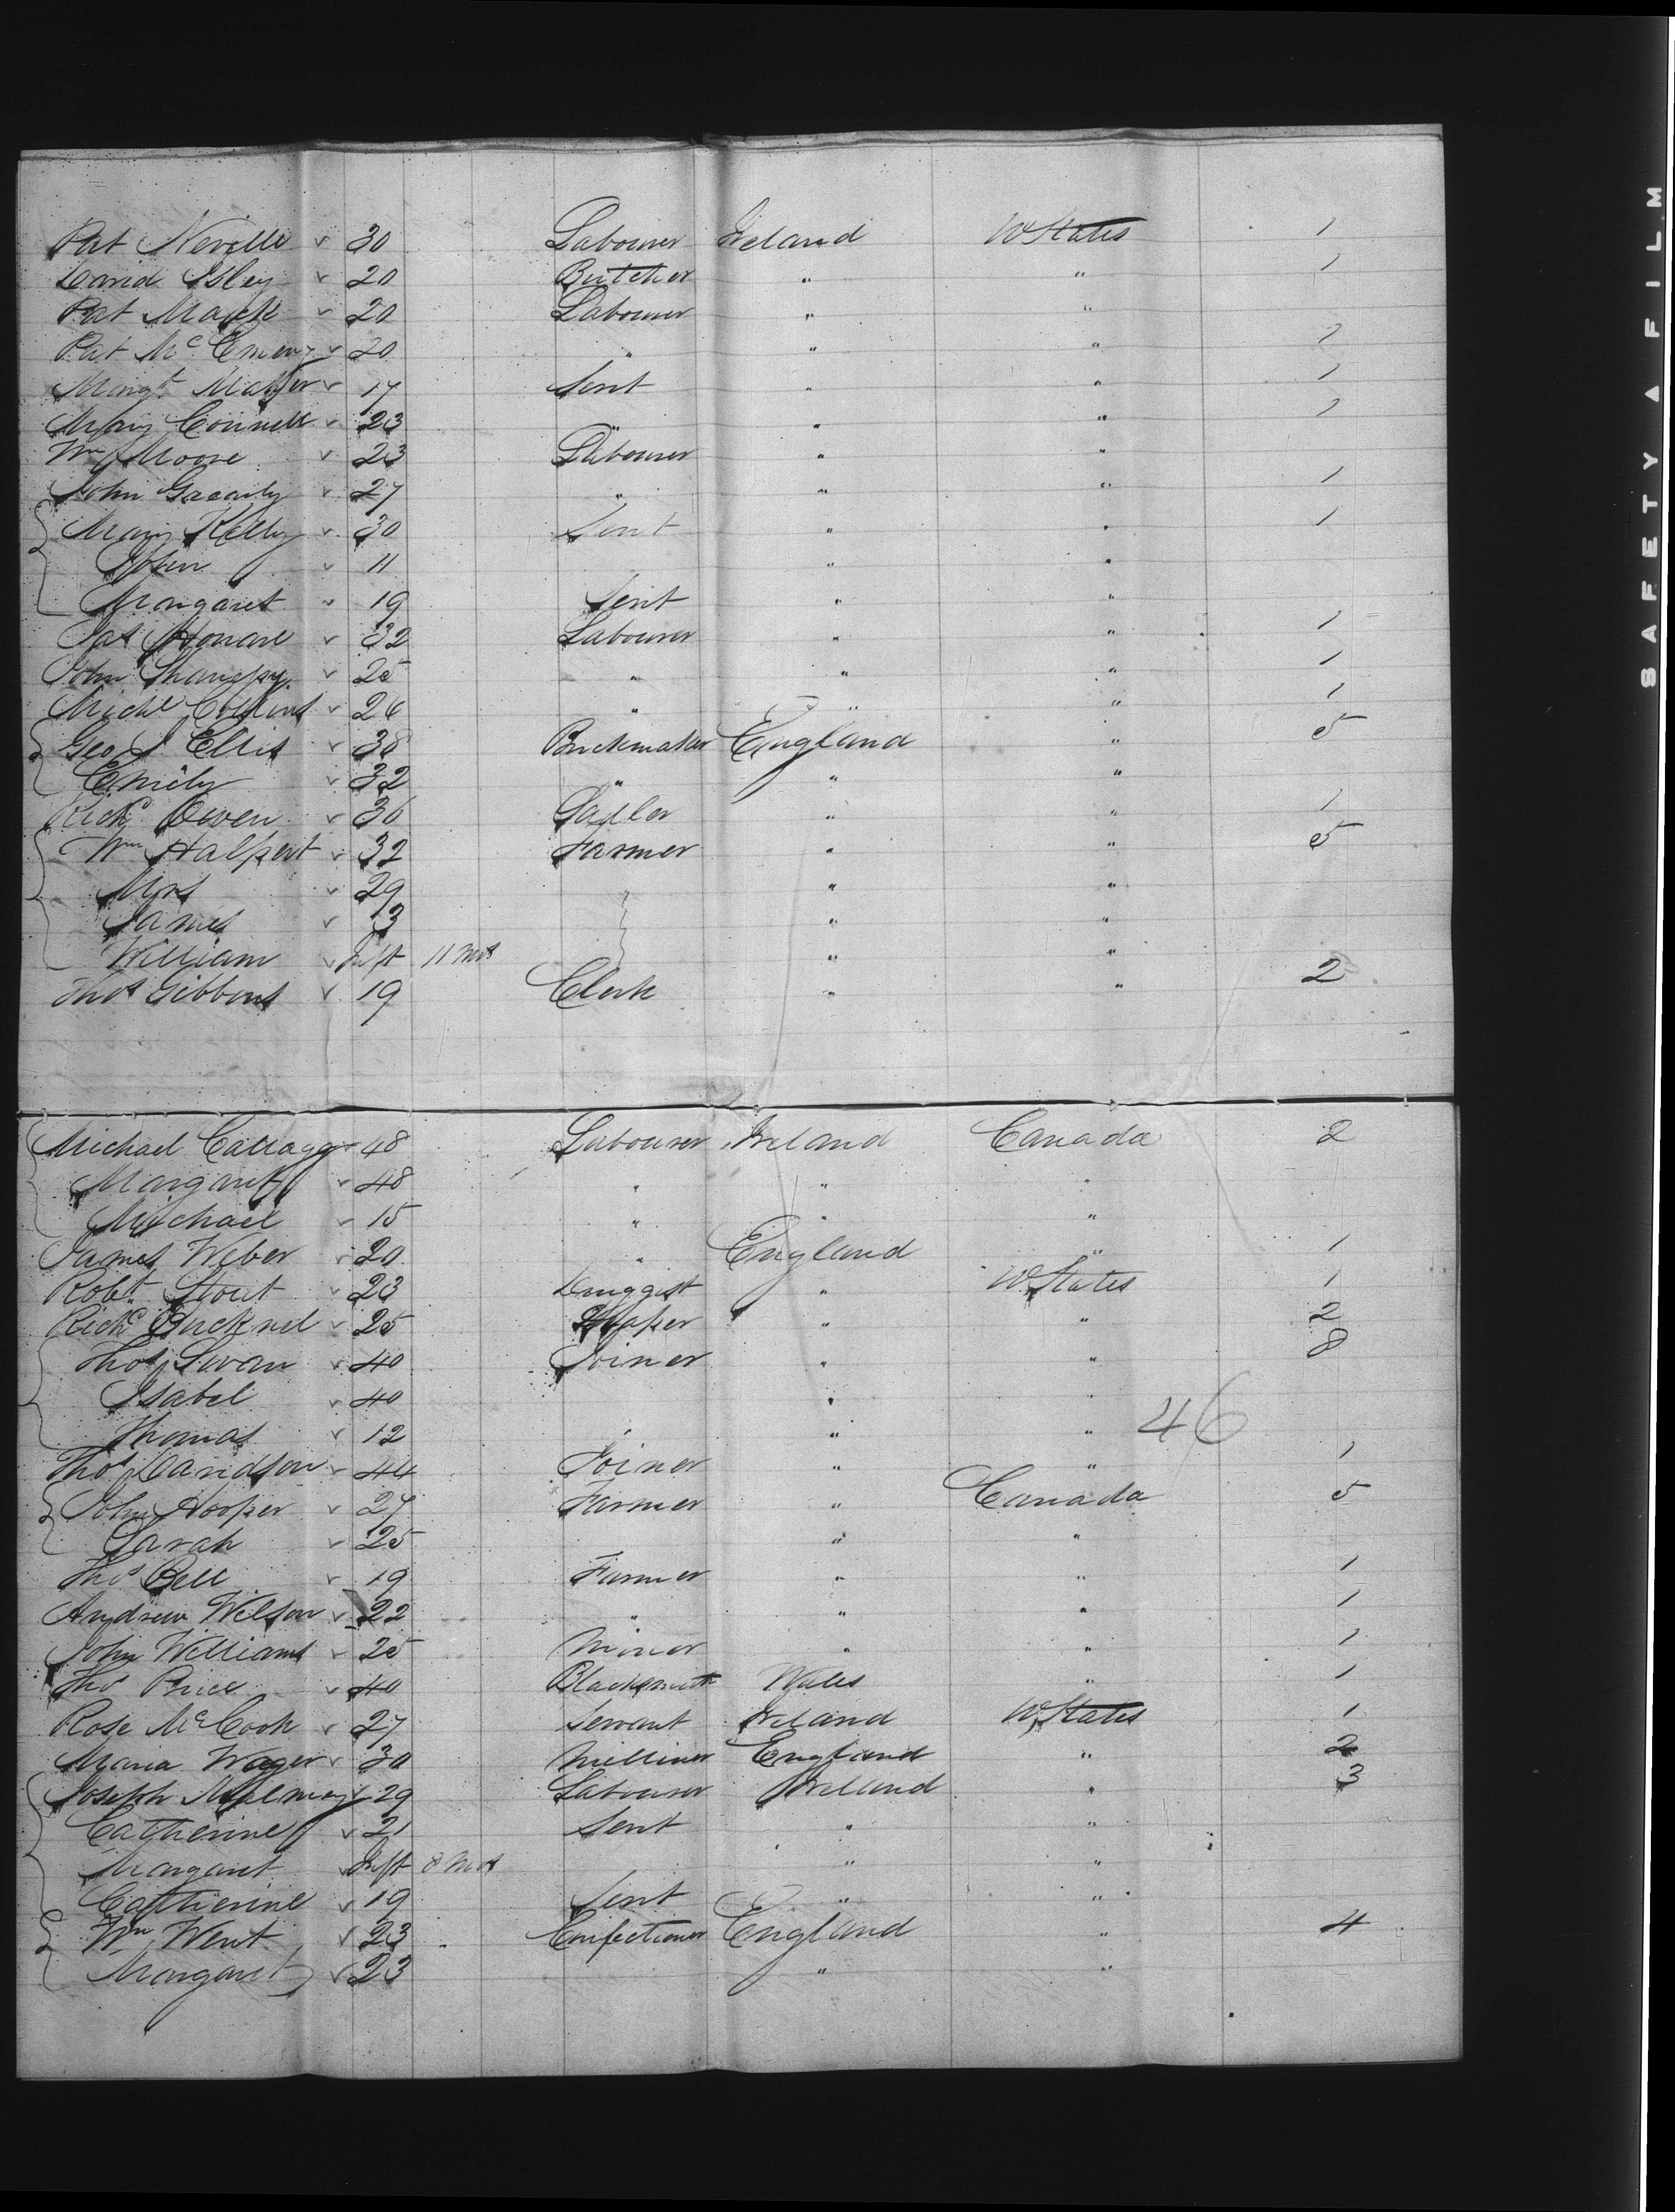 Pat Neville v 30 Labourer Ireland W States 1
David Isley v 20 Butcher " " 1
Pat Mack v 20 Labourer " "
Pat Mc v 20 " " " 1
Margt Maher v 17 Servt " " 1
Mary Connell v 23 " " " 1
Wm Moore v 23 Labourer " "
John v 27 " " " 1
Mary Kelly v 30 Servt " " 1
John v 11 " "
Margaret v 19 Servt " "
v 32 Labourer " " 1
John v 25 " " " 1
Michl Collins v 26 " " " 1
Geo J Ellis v 38 Brickmaker England " 5
Emily v 32 " " "
Richd Owen v 36 Sadler " " 1
Wm Halpert v 32 Farmer " " 5
Mrs v 29 " "
James v 3 " "
William v Inft 11 mos " "
Thos Gibbons v 19 Clerk " " 2
Michael 48 Labourer Ireland Canada 2
Margaret v 48 " " "
Michael v 15 " " "
James Weber v 20 " England " 1
Robt Stout v 23 Druggist " W States 1
Richd Bucknel v 25 Draper " " 2
Thos Swan v 40 Joiner " " 8
Isabel v 40 " "
Thomas v 12 " "
46
Thos Davidson v 44 Joiner " " 1
John Hooper v 27 Farmer " Canada 5
Sarah v 25 " "
Thos Bell v 19 Farmer " " 1
Andrew Wilson v 22 " " " 1
John Williams v 25 Miner " " 1
Thos Price v 40 Blacksmith Wales " 1
Rose McCook v 27 Servant Ireland W States 1
Maria Wager v 30 Milliner England " 2
Joseph 29 Labourer Ireland " 3
Catherine v 21 Servt " "
Margaret v Inft 8 mos " "
Catherine v 19 Servt " "
Wm Went v 23 Confectioner England " 4
Margaret v 23 " "
SAFETY A FILM